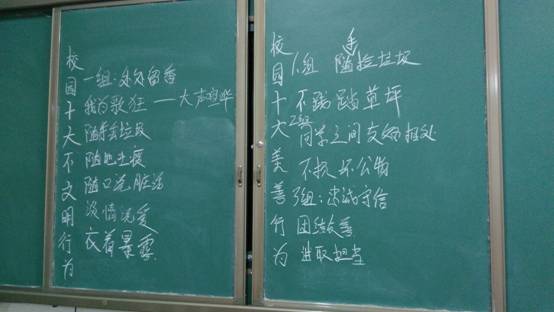 校园十大不文明行为
一组:处处留香
我为歌狂——大声喧哗
随手丢垃圾
随地吐痰
随口说脏话
谈情说爱
衣着暴露
校园十大美善行为
1组 随手捡垃圾
不践踏草坪
2组 同学之间友好相处
不损坏公物
3组:诚守信
团结友善
进取担当